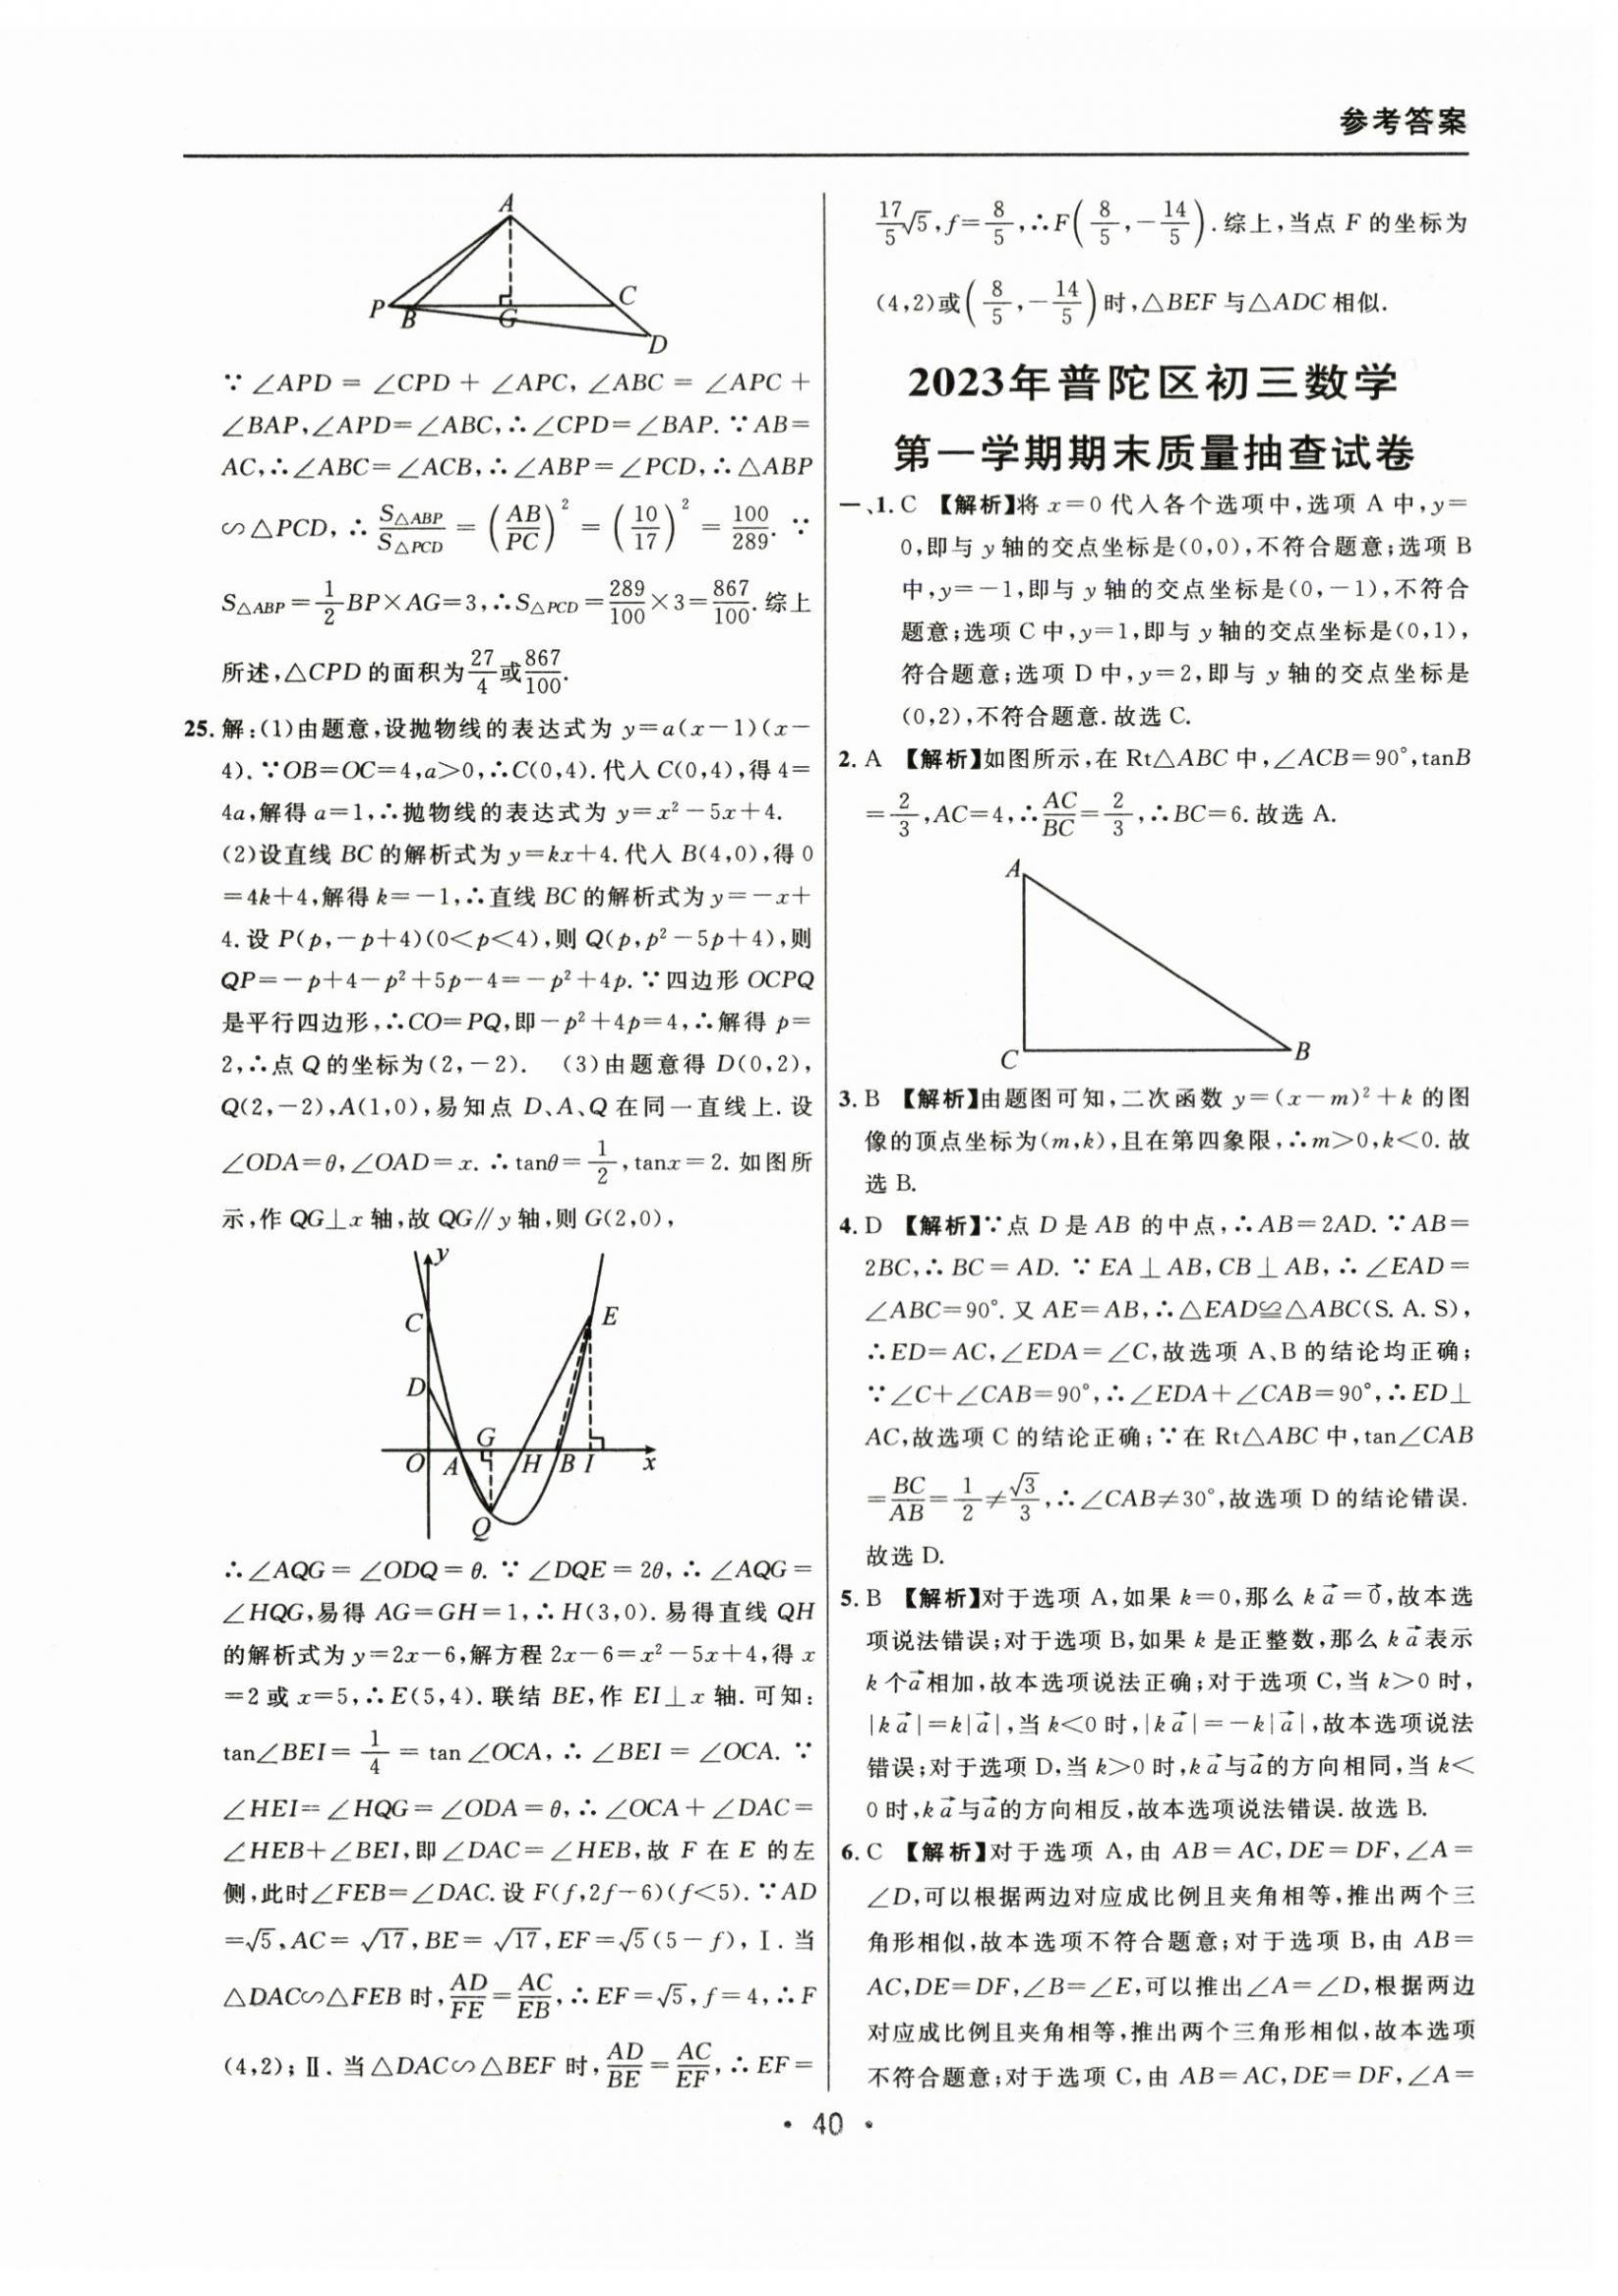 参考答案
A
P
B
G
C
D
∵∠APD=∠CPD+∠APC,∠ABC=∠APC+
∠BAP,∠APD=∠ABC,∴∠CPD=∠BAP.∵AB=
AC,∴∠ABC=∠ACB,∴∠ABP=∠PCD,∴△ABP
∽△PCD,∴S△ABP/S△PCD=(AB/PC)²=(10/17)²=100/289.∵
S△ABP=1/2BP×AG=3,∴S△PCD=289/100×3=867/100.综上
所述,△CPD的面积为27/4或867/100.
25.解:(1)由题意,设抛物线的表达式为y=a(x-1)(x-
4).∵OB=OC=4,a>0,∴C(0,4).代入C(0,4),得4=
4a,解得a=1,∴抛物线的表达式为y=x²-5x+4.
(2)设直线BC的解析式为y=kx+4.代入B(4,0),得0
=4k+4,解得k=-1,∴直线BC的解析式为y=-x+
4.设P(p,-p+4)(0<p<4),则Q(p,p²-5p+4),则
QP=-p+4-p²+5p-4=-p²+4p.∵四边形OCPQ
是平行四边形,∴CO=PQ,即-p²+4p=4,∴解得p=
2,∴点Q的坐标为(2,-2). (3)由题意得D(0,2),
Q(2,-2),A(1,0),易知点D、A、Q在同一直线上.设
∠ODA=θ,∠OAD=x.∴tanθ=1/2,tanx=2.如图所
示,作QG⊥x轴,故QG∥y轴,则G(2,0),
y
C
E
D
G
O
A
H
B
I
x
Q
∴∠AQG=∠ODQ=θ.∵∠DQE=2θ,∴∠AQG=
∠HQG,易得AG=GH=1,∴H(3,0).易得直线QH
的解析式为y=2x-6,解方程2x-6=x²-5x+4,得x
=2或x=5,∴E(5,4).联结BE,作EI⊥x轴.可知:
tan∠BEI=1/4=tan∠OCA,∴∠BEI=∠OCA.∵
∠HEI=∠HQG=∠ODA=θ,∴∠OCA+∠DAC=
∠HEB+∠BEI,即∠DAC=∠HEB,故F在E的左
侧,此时∠FEB=∠DAC.设F(f,2f-6)(f<5).∵AD
=√5,AC=√17,BE=√17,EF=√5(5-f),Ⅰ.当
△DAC∽△FEB时,AD/FE=AC/EB,∴EF=√5,f=4,∴F
(4,2);Ⅱ.当△DAC∽△BEF时,AD/BE=AC/EF,∴EF=
17/5√5,f=8/5,∴F(8/5,-14/5).综上,当点F的坐标为
(4,2)或(8/5,-14/5)时,△BEF与△ADC相似.
2023年普陀区初三数学
第一学期期末质量抽查试卷
一、1.C 【解析】将x=0代入各个选项中,选项A中,y=
0,即与y轴的交点坐标是(0,0),不符合题意;选项B
中,y=-1,即与y轴的交点坐标是(0,-1),不符合
题意;选项C中,y=1,即与y轴的交点坐标是(0,1),
符合题意;选项D中,y=2,即与y轴的交点坐标是
(0,2),不符合题意.故选C.
2.A 【解析】如图所示,在Rt△ABC中,∠ACB=90°,tanB
=2/3,AC=4,∴AC/BC=2/3,∴BC=6.故选A.
A
C
B
3.B 【解析】由题图可知,二次函数y=(x-m)²+k的图
像的顶点坐标为(m,k),且在第四象限,∴m>0,k<0.故
选B.
4.D 【解析】∵点D是AB的中点,∴AB=2AD.∵AB=
2BC,∴BC=AD.∵EA⊥AB,CB⊥AB,∴∠EAD=
∠ABC=90°.又AE=AB,∴△EAD≌△ABC(S.A.S),
∴ED=AC,∠EDA=∠C,故选项A、B的结论均正确;
∵∠C+∠CAB=90°,∴∠EDA+∠CAB=90°,∴ED⊥
AC,故选项C的结论正确;∵在Rt△ABC中,tan∠CAB
=BC/AB=1/2≠√3/3,∴∠CAB≠30°,故选项D的结论错误.
故选D.
5.B 【解析】对于选项A,如果k=0,那么ka⃗=0⃗,故本选
项说法错误;对于选项B,如果k是正整数,那么ka⃗表示
k个a⃗相加,故本选项说法正确;对于选项C,当k>0时,
|ka⃗|=k|a⃗|,当k<0时,|ka⃗|=-k|a⃗|,故本选项说法
错误;对于选项D,当k>0时,ka⃗与a⃗的方向相同,当k<
0时,ka⃗与a⃗的方向相反,故本选项说法错误.故选B.
6.C 【解析】对于选项A,由AB=AC,DE=DF,∠A=
∠D,可以根据两边对应成比例且夹角相等,推出两个三
角形相似,故本选项不符合题意;对于选项B,由AB=
AC,DE=DF,∠B=∠E,可以推出∠A=∠D,根据两边
对应成比例且夹角相等,推出两个三角形相似,故本选项
不符合题意;对于选项C,由AB=AC,DE=DF,∠A=
• 40 •